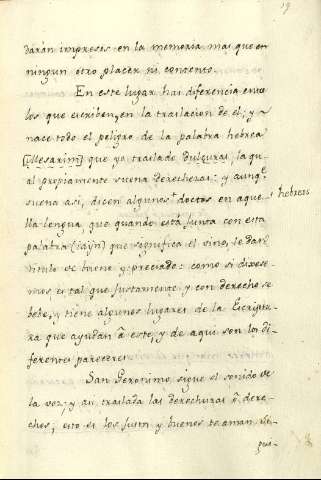 19
darán impresos en la memoria mas que en
ningun otro placer ni contento.
En este lugar hai diferencia entre
los que escriben, en la traslacion de él; y
nace todo el peligro de la palabra hebrea
(Mesarim) que yo traslado dulzuras, la qu
al propiamente suena derechezas: y aunq.e
suena asi, dicen algunos + doctos en aque- + hebreos
lla lengua que quando está junta con esta
palabra (iaijn) que significa el vino, le dar
titulo de bueno y preciado: como si dixese-
mos el tal que justamente y con derecho se
bebe, y tiene algunos lugares de la Escriptu-
ra que ayudan à esto, y de aqui son los di-
ferentes pareceres
San Geronimo sigue el sonido de
la voz; y asi traslada las derechuras ò dere-
chos, esto es los justos y buenos te aman, si-
gui-